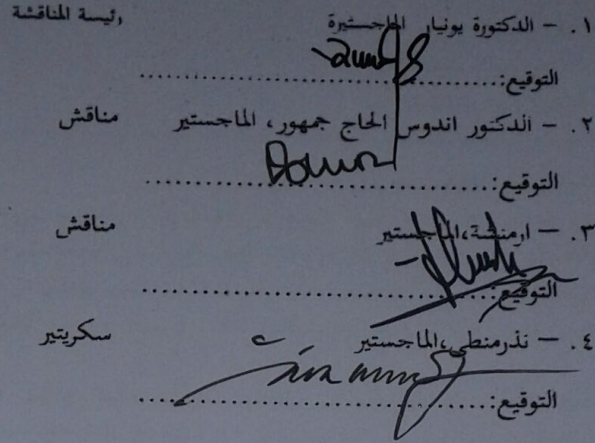 ١. – الدكتورة يونيار الماجستيرة رئيسة المناقشة
التوقيع:........................................
٢. – الدكتور اندوس الحاج جمهور، الماجستير مناقش
التوقيع:........................................
٣. – ارمنشة،الماجستير مناقش
التوقيع:........................................
٤. – نذرمنطي،الماجستير سكريتير
التوقيع:........................................